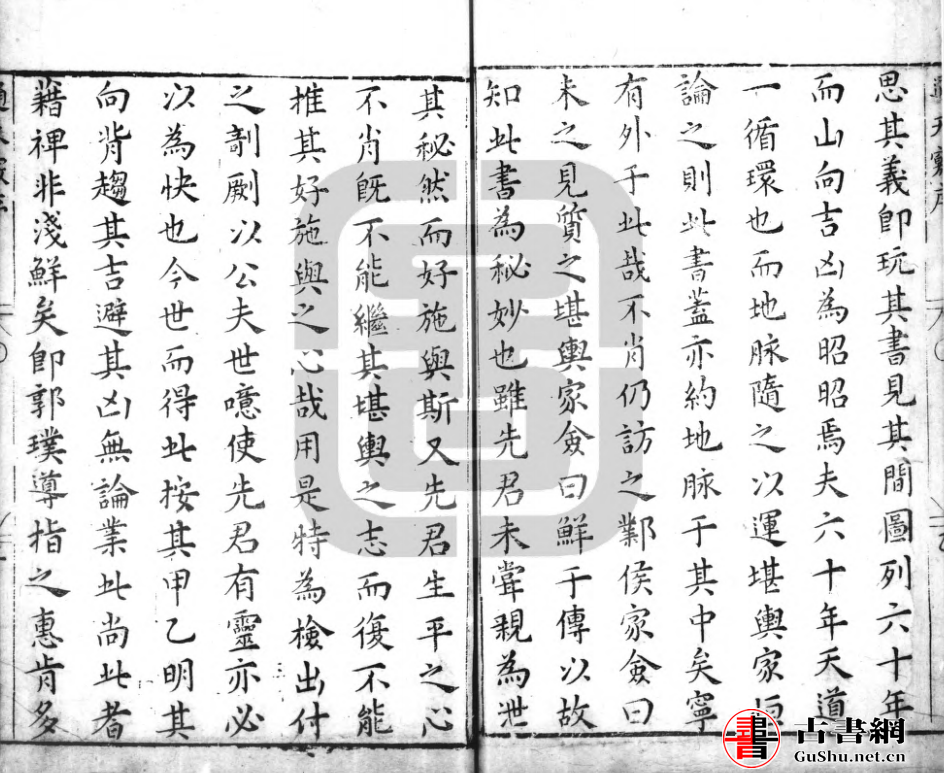 思其義即玩其書見其間圖列六十年
而山向吉凶為昭昭焉夫六十年天道
一循環也而地脉隨之以運堪輿家恒
論之則此書蓋亦約地脉于其中矣寧
有外于此哉不肖仍訪之鄴侯家僉曰
未之見質之堪輿家僉曰鮮于傳以故
知此書為秘妙也雖先君未甞親為泄
其秘然而好施與斯又先君生平之心
不肖旣不能繼其堪輿之志而復不能
推其好施與之心哉用是特為檢出付
之剞劂以公夫世噫使先君有靈亦必
以為快也今世而得此按其甲乙明其
向背趨其吉避其凶無論業此尚此者
藉裨非淺鮮矣即郭璞導指之惠肯多
書 古書網
GuShu.net.cn